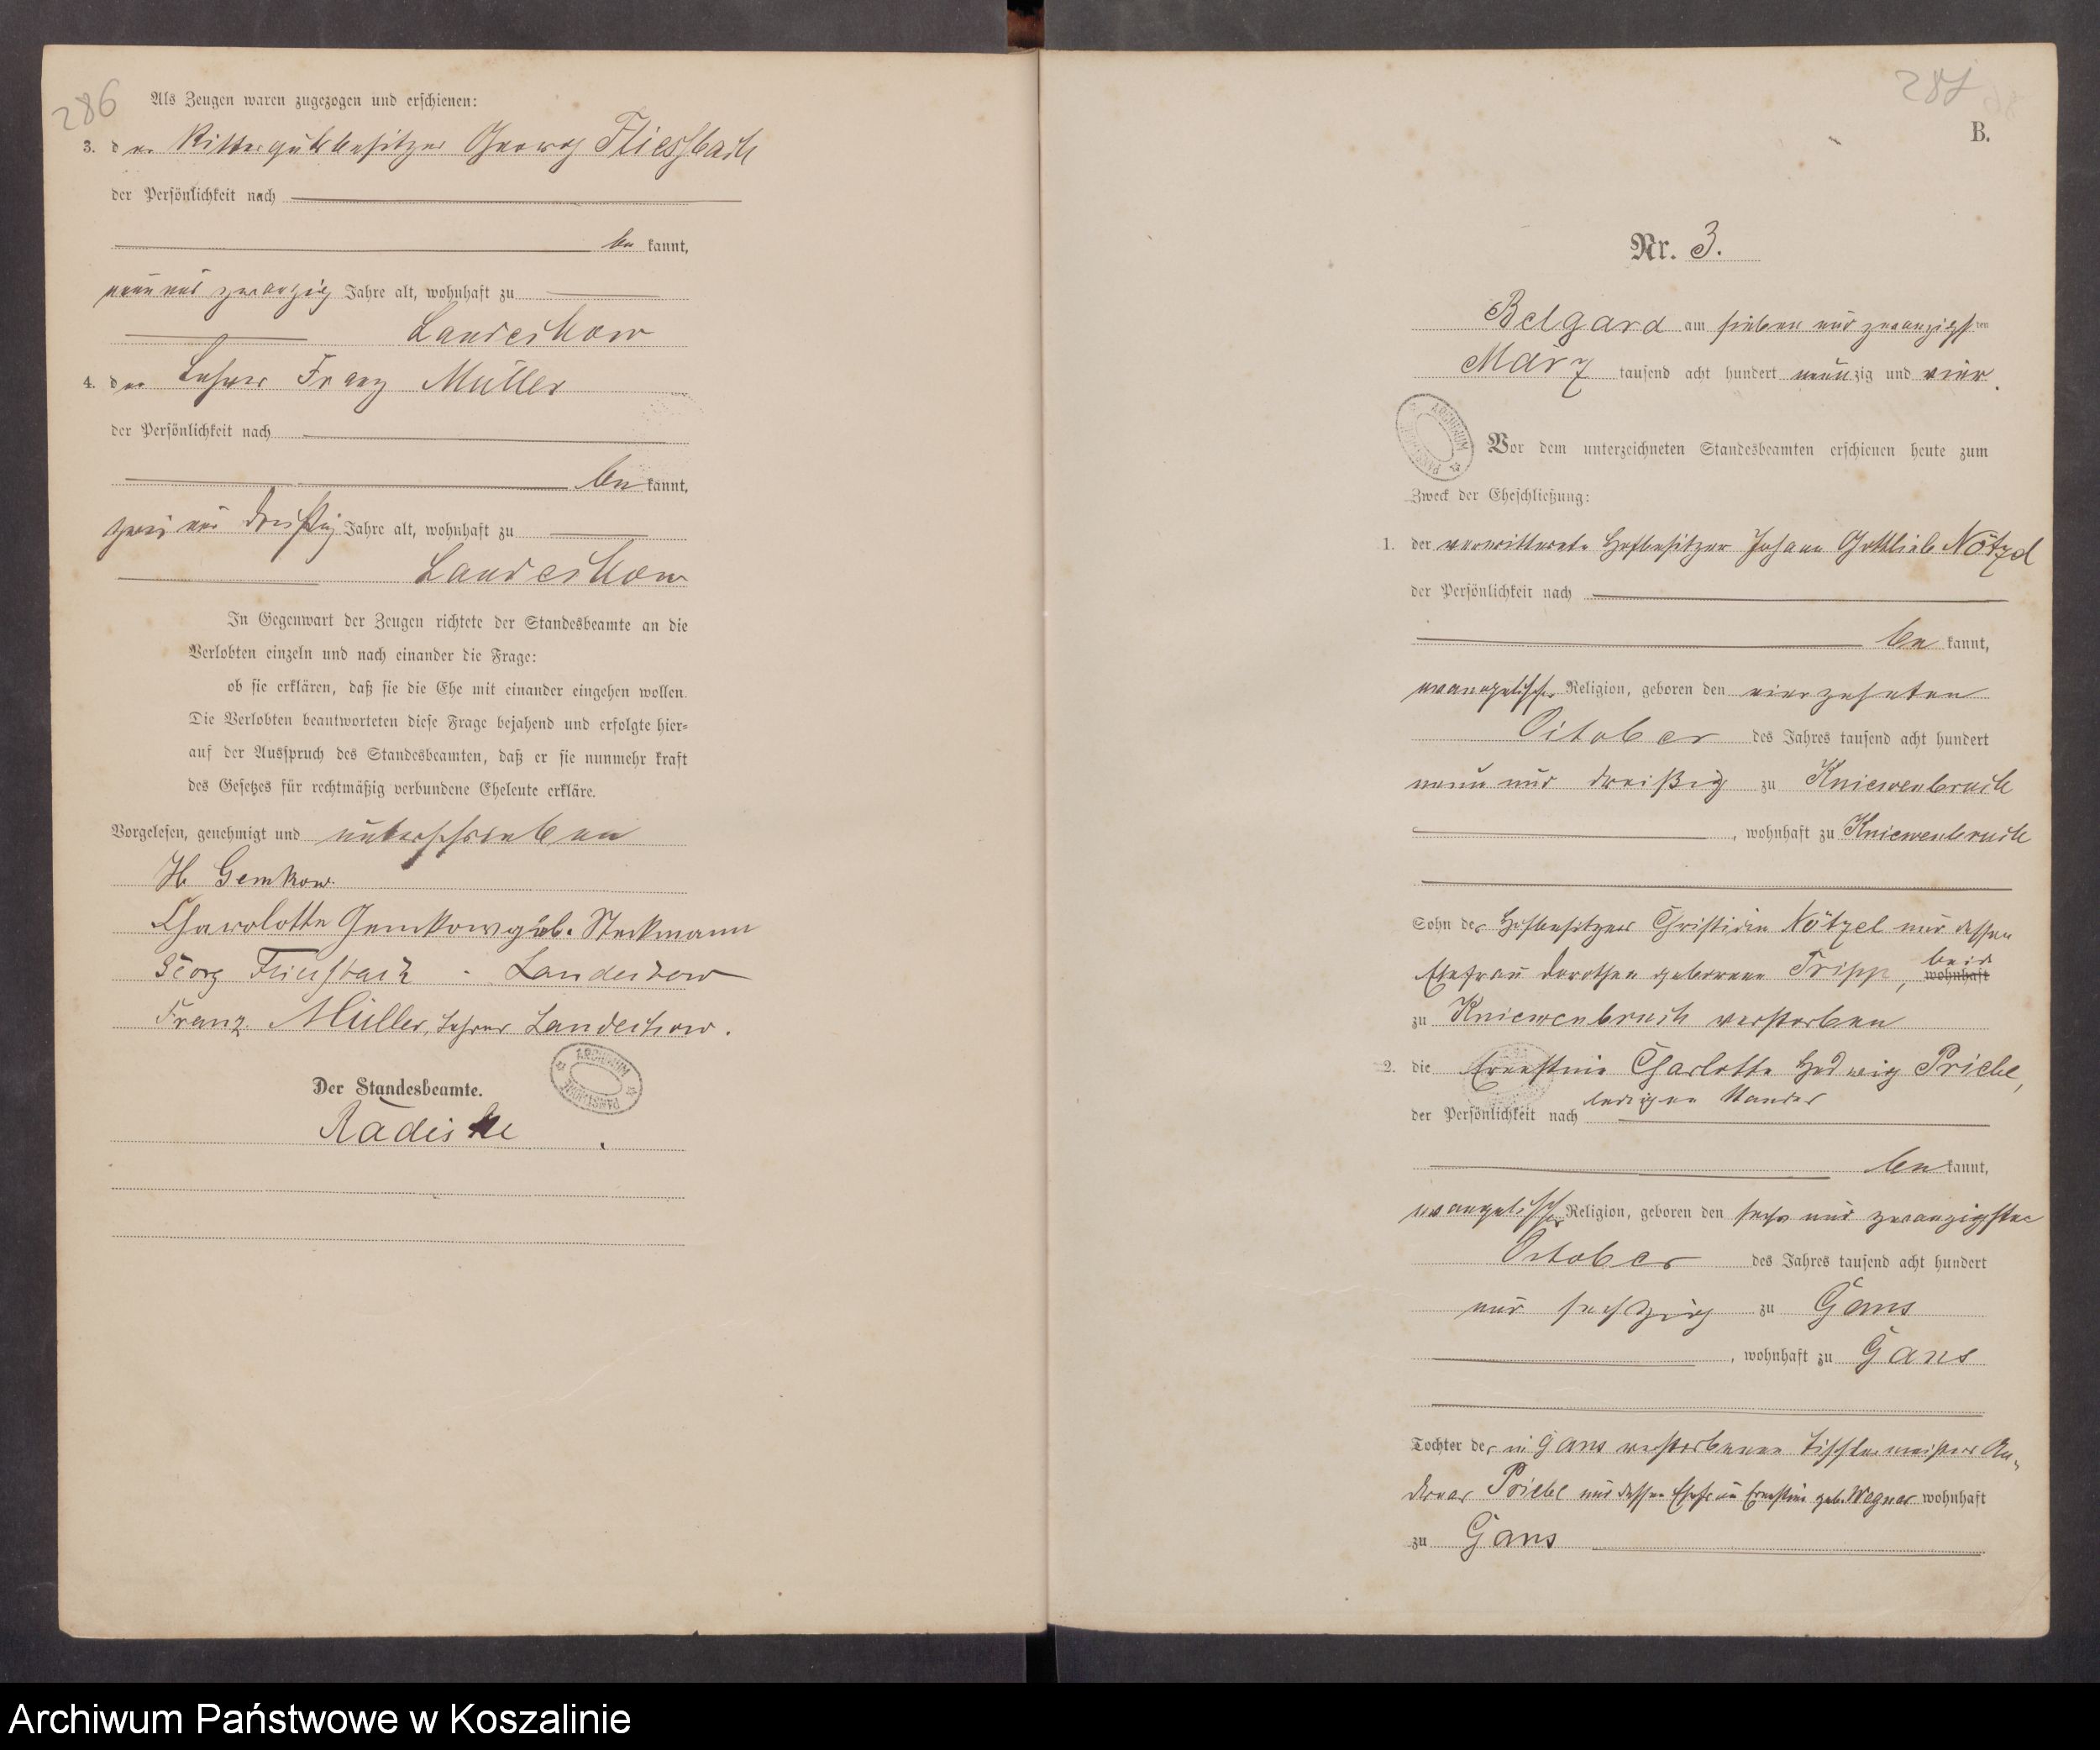 286
Als Zeugen waren zugezogen und erschienen:
3. der Rittergutsbesitzer Georg Fliessbach
der Persönlichkeit nach
be kannt,
neun und zwanzig Jahre alt, wohnhaft zu
Landechow
4. der Lehrer Franz Müller
der Persönlichkeit nach
be kannt,
zwei und dreißig Jahre alt, wohnhaft zu
Landechow
In Gegenwart der Zeugen richtete der Standesbeamte an die
Verlobten einzeln und nach einander die Frage:
ob sie erklären, daß sie die Ehe mit einander eingehen wollen.
Die Verlobten beantworteten diese Frage bejahend und erfolgte hier-
auf der Ausspruch des Standesbeamten, daß er sie nunmehr kraft
des Gesetzes für rechtmäßig verbundene Eheleute erkläre.
Vorgelesen, genehmigt und unterschrieben
H Gemkow
Charolotte Gemkow geb. Steckmann
Georg Fliessbach - Landechow
Franz Müller, Lehrer Landechow.
Der Standesbeamte.
Radeiske
287
B.
Nr. 3.
Belgard am sieben und zwanzigsten
März tausend acht hundert neunzig und vier.
ARCHIWUM PAŃSTWOWE
Vor dem unterzeichneten Standesbeamten erschienen heute zum
Zweck der Eheschließung:
1. der verwittwete Hofbesitzer Johann Gottlieb Nötzel
der Persönlichkeit nach
be kannt,
evangelischer Religion, geboren den vierzehnten
October des Jahres tausend acht hundert
neun und dreißig zu Kniewenbruch
, wohnhaft zu Kniewenbruch
Sohn des Hofbesitzers Christian Nötzel und dessen
Ehefrau Dorothea geborene Tripp, beide wohnhaft
zu Kniewenbruch verstorben
2. die Ernestine Charlotte Hedwig Priebe,
ledigen Standes
der Persönlichkeit nach
be kannt,
evangelischer Religion, geboren den sechs und zwanzigsten
October des Jahres tausend acht hundert
und sechzig zu Gans
, wohnhaft zu Gans
Tochter des in Gans verstorbenen Tischlermeisters An-
dreas Priebe und dessen Ehefrau Ernestine geb. Wegner wohnhaft
zu Gans
Archiwum Państwowe w Koszalinie